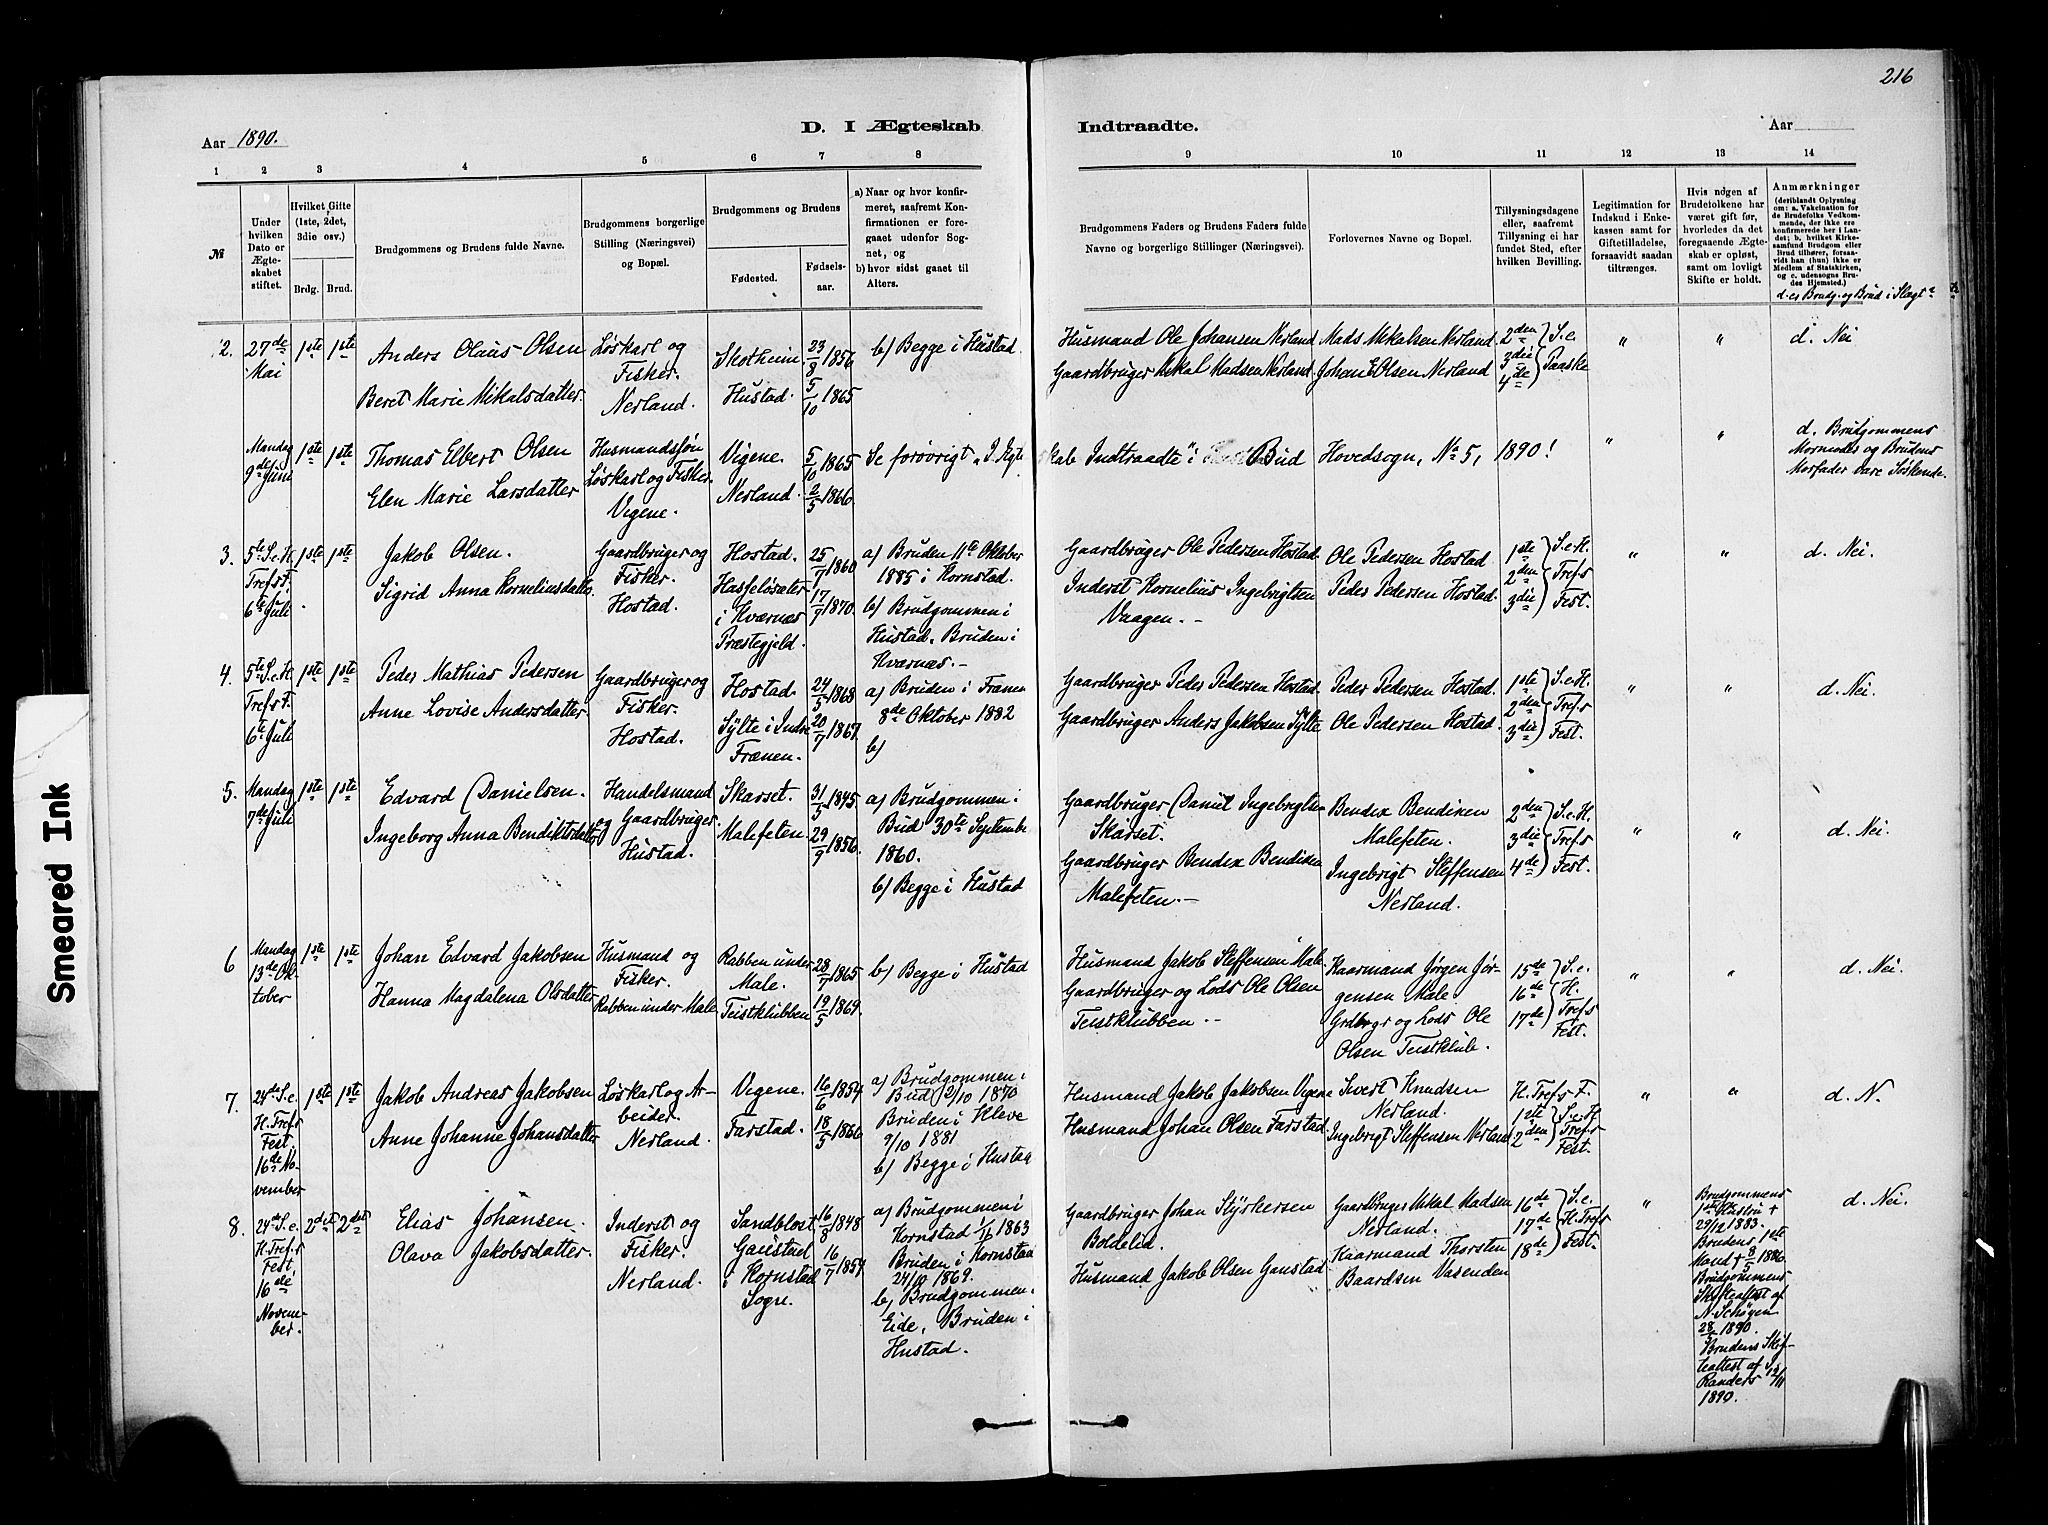 216
D. I Ægteskab Indtraadte.
Aar 1890.
Aar
1 2 3 4 5 6 7 8 9 10 11 12 13 14
№
Under hvilken Dato er Ægteskabet stiftet.
Hvilket Gifte (1ste, 2det, 3die osv.)
Brdg. Brud.
Brudgommens og Brudens fulde Navne.
Brudgommens borgerlige Stilling (Næringsvei) og Bopæl.
Brudgommens og Brudens
Fødested.
Fødsels-aar.
a) Naar og hvor konfirmeret, saafremt Konfirmationen er foregaaet udenfor Sognet, og
b) hvor sidst gaaet til Alters.
Brudgommens Faders og Brudens Faders fulde Navne og borgerlige Stillinger (Næringsvei).
Forlovernes Navne og Bopæl.
Tillysningsdagene eller, saafremt Tillysning ei har fundet Sted, efter hvilken Bevilling.
Legitimation for Indskud i Enkekassen samt for Giftetilladelse, forsaavidt saadan tiltrænges.
Hvis nogen af Brudefolkene har været gift før, hvorledes da det foregaaende Ægteskab er opløst, samt om lovligt Skifte er holdt.
Anmærkninger (deriblandt Oplysning om: a. Vakcination for de Brudefolks Vedkommende, der ikke ere konfirmerede her i Landet; b. hvilket Kirkesamfund Brudgom eller Brud tilhører, forsaavidt han (hun) ikke er Medlem af Statskirken, og c. udensogns Brudes Hjemsted.)
d. er Brudg. og Brud i Slægt
2. 27de Mai 1ste 1ste
Anders Olaus Olsen
Beret Marie Mikalsdatter.
Løskarl og Fisker. Nerland.
Skotheim 23/8 1856
Hustad. 5/10 1865
b) Begge i Hustad.
Husmand Ole Johansen Nerland
Gaardbruger Mikal Madsen Nerland
Mads Mikalsen Nerland
Johan E Olsen Nerland
2den 3die 4de S. e. Paaske
" "
d. Nei
Mandag 9de Juni 1ste 1ste
Thomas Elbert Olsen
Elen Marie Larsdatter
Husmandssøn Løskarl og Fisker. Vigene.
Vigene. 5/6 1865
Nerland. 2/5 1866
Se forøvrigt "I Ægteskab Indtraadte" i Bud Hovedsogn, No 5, 1890!
" "
d. Brudgommens Mormodes og Brudens Morfader vare Søskende.
3. 5te S. e. H. Tref.s F. 6te Juli 1ste 1ste
Jakob Olsen.
Sigrid Anna Korneliusdatter
Gaardbruger og Fisker. Hostad.
Hostad. 25/7 1860
Hasfeløsæter i Kværnæs Præstegjeld. 17/7 1870
a) Bruden 11te Oktober 1885 i Kornstad.
b) Brudgommen i Hustad. Bruden i Kværnæs.-
Gaardbruger Ole Pedersen Hostad
Inderst Kornelius Ingebrigtsen Vaagen.-
Ole Pedersen Hostad
Peder Pedersen Hostad.
1ste 2den 3die S. e. H. Tref.s Fest.
" "
d. Nei.
4. 5te S. e. H. Tref.s F. 6te Juli 1ste 1ste
Peder Mathias Pedersen
Anne Lovise Andersdatter
Gaardbruger og Fisker. Hostad.
Hostad. 24/5 1868
Sylte i Indre Frænen. 20/7 1867
a) Bruden i Frænen 8de Oktober 1882
b)
Gaardbruger Peder Pedersen Hostad
Gaardbruger Anders Jakobsen Sylte
Peder Pedersen Hostad.
Ole Pedersen Hostad.
1ste 2den 3die S. e. H. Tref.s Fest.
" "
d. Nei.
5. Mandag 7de Juli 1ste 1ste
Edvard Danielsen.
Ingeborg Anna Bendiktsdatter
Handelsmand og Gaardbruger. Hustad.
Skarset. 31/5 1845
Malefeten. 29/9 1856.
a) Brudgommen i Bud 30te September 1860.
b) Begge i Hustad
Gaardbruger Daniel Ingebrigtsen Skarset.
Gaardbruger Bendix Bendixen Malefeten.-
Bendix Bendixen Malefeten.
Ingebrigt Steffensen Nerland.
2den 3die 4de S. e. H. Tref.s Fest.
" "
d. Nei.
6 Mandag 13de Oktober 1ste 1ste
Johan Edvard Jakobsen
Hanna Magdalena Olsdatter
Husmand og Fisker. Rabben under Male.
Rabben under Male. 28/7 1865
Teistklubben 19/5 1869.
b) Begge i Hustad
Husmand Jakob Steffensen Male.
Gaardbruger og Lods Ole Olsen Teistklubben.-
Kaarmand Jørgen Jørgensen Male
Grdbrgr og Lods Ole Olsen Teistklub.
15de 16de 17de S. e. H. Tref.s Fest.
" "
d. Nei.
7. 24de S. e. H. Tref.s Fest. 16de November 1ste 1ste
Jakob Andreas Jakobsen
Anne Johanne Johansdatter
Løskarl og Arbeider. Nerland.
Vegene. 16/6 1854
Farstad. 18/5 1866
a) Brudgommen i Bud 2/10 1870
Bruden i Kleve 9/10 1881
b) Begge i Hustad
Husmand Jakob Jakobsen Vegene
Husmand Johan Olsen Farstad.
Sivert Knudsen Nerland.
Ingebrigt Steffensen Nerland
H. Tref.s F. 1ste 2den S. e. H. Tref.s Fest.
" "
d. N.
8. 24de S. e. H. Tref.s Fest, 16de November. 2det 2det
Elias Johansen.
Olava Jakobsdatter.
Inderst og Fisker. Nerland.
Sandblost 16/8 1848
Gaustad i Kornstad Sogn. 16/7 1854
a) Brudgommen i Kornstad 1/6 1863
Bruden i Kornstad 24/10 1869.
b) Brudgommen i Eide, Bruden i Hustad.
Gaardbruger Johan Styrkersen Boldelid.
Husmand Jakob Olsen Gaustad
Gaardbruger Mikal Madsen Nerland.
Kaarmand Thorsten Baardsen Vasenden
16de 17de 18de S. e. H. Tref.s Fest.
"
Brudgommens 1ste Hustru † 29/12 1883. Brudens 1ste Mand † 8/5 1886. Brudgommens Skifteattest af N. Schøyen 28/5 1890. Brudens Skifteattest af S. Randers 12/11 1890.
d. Nei.
Smeared Ink